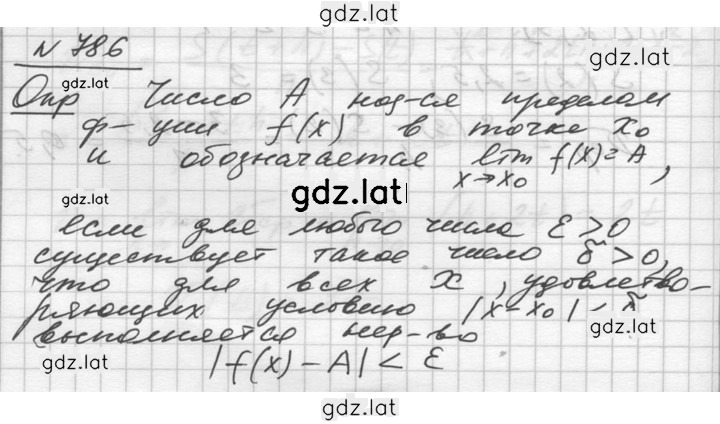 gdz.lat
N 786
gdz.lat gdz.lat
Опр Число A наз-ся пределом
ф-ции f(x) в точке x₀
и обозначается lim f(x)=A,
x→x₀
gdz.lat
если для любого числа ε>0
существует такое число δ>0,
что для всех x, удовлетво-
ряющих условию |x-x₀|
gdz.lat
выполняется нер-во
gdz.lat |f(x)-A|<ε gdz.lat
gdz.lat